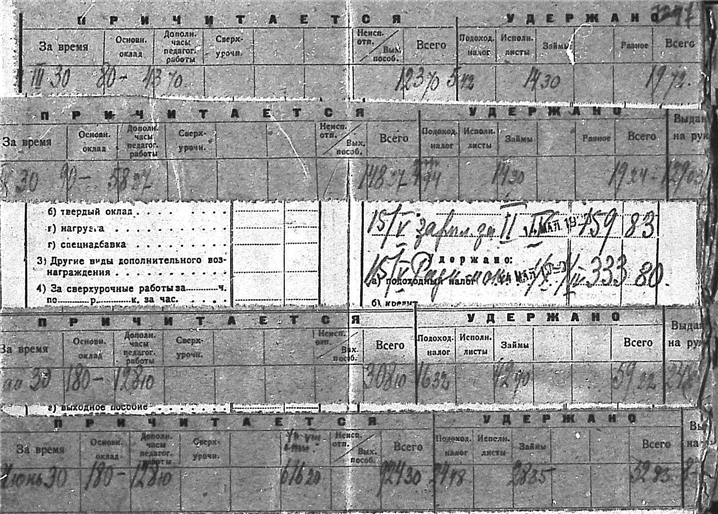 ПРИЧИТАЕТСЯ УДЕРЖАНО
За время Основн. оклад Дополн. часы педагог. работы Сверх-урочн. Неисп. отп. Вых. пособ. Всего Подоход. налог Исполн. листы Займы Разное Всего
III 30 80- 43 70 123 70 5 42 14 30 19 72
ПРИЧИТАЕТСЯ УДЕРЖАНО
За время Основн. оклад Дополн. часы педагог. работы Сверх-урочн. Неисп. отп. Вых. пособ. Всего Подоход. налог Исполн. листы Займы Разное Всего Выдан на рук
30 90- 58 27 148 27 4 94 14 30 19 24
б) твердый оклад
г) нагрузка
г) спецнадбавка
3) Другие виды дополнительного воз-
награждения
4) За сверхурочные работы за ч.
по р. к. за час.
15/V 159 83
держано:
а) подоходный налог
15/V 333 80.
б) кредит
ПРИЧИТАЕТСЯ УДЕРЖАНО
За время Основн. оклад Дополн. часы педагог. работы Сверх-урочн. Неисп. отп. Вых. пособ. Всего Подоход. налог Исполн. листы Займы Всего Выдан на рук
30 180- 128 10 308 10 16 32 42 90 59 22
г) выходное пособие
ПРИЧИТАЕТСЯ УДЕРЖАНО
За время Основн. оклад Дополн. часы педагог. работы Сверх-урочн. Неисп. отп. Вых. пособ. Всего Подоход. налог Исполн. листы Займы Всего
Июнь 30 180- 128 10 616 20 924 30 24 48 28 35 52 83